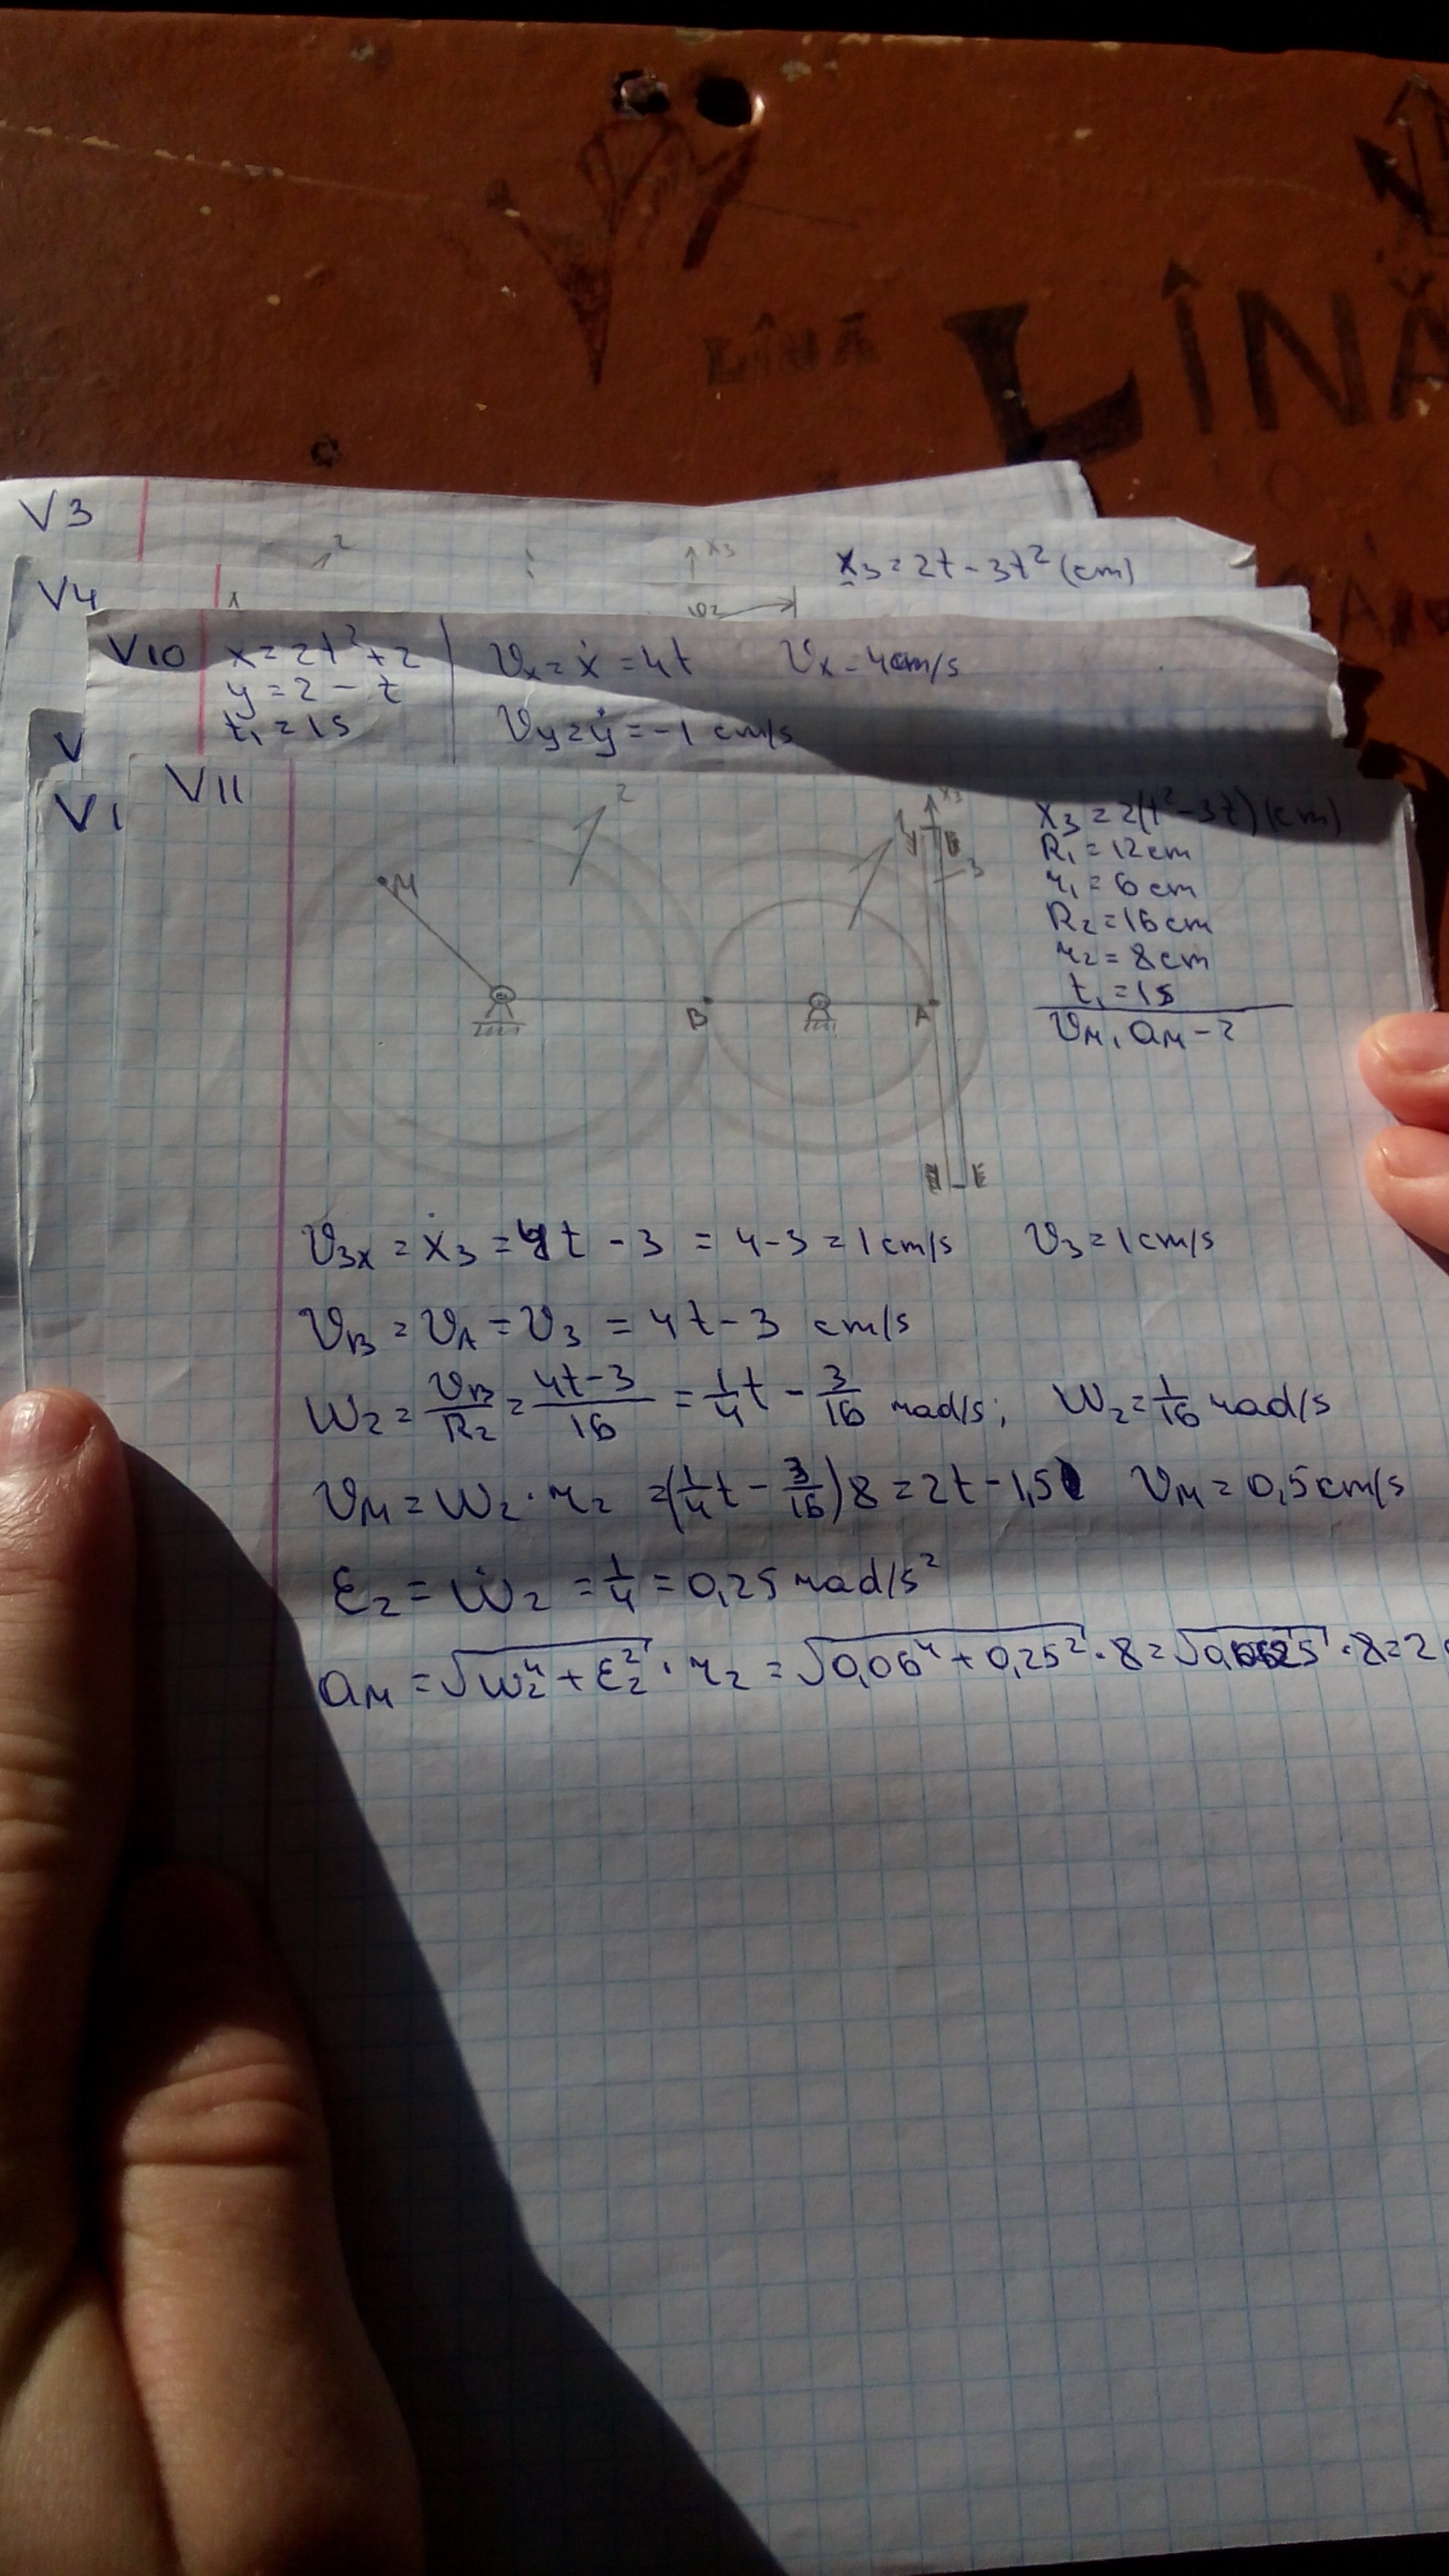 LÎNĂ
LÎNĂ
V3
2
x3
X3 = 2t - 3t² (cm)
V4
1
φ2
V10
x = 2t² + 2
y = 2 - t
t₁ = 1s
Vx = ẋ = 4t
Vx - 4cm/s
Vy = ẏ = -1 cm/s
V
V1
V11
2
1
x3
3
M
B
A
X3 = 2(t² - 3t) (cm)
R₁ = 12 cm
r₁ = 6 cm
R₂ = 16 cm
r₂ = 8 cm
t₁ = 1s
Vм, aм - ?
V3x = ẋ3 = 4t - 3 = 4 - 3 = 1 cm/s V3 = 1 cm/s
VB = VA = V3 = 4t - 3 cm/s
ω2 = VB/R2 = (4t-3)/16 = 1/4 t - 3/16 rad/s; ω2 = 1/16 rad/s
Vм = ω2 · r2 = (1/4 t - 3/16) 8 = 2t - 1,5 Vм = 0,5 cm/s
ε2 = ω̇2 = 1/4 = 0,25 rad/s²
aм = √(ω2⁴ + ε2²) · r2 = √(0,06⁴ + 0,25²) · 8 = √0,0625 · 8 = 2